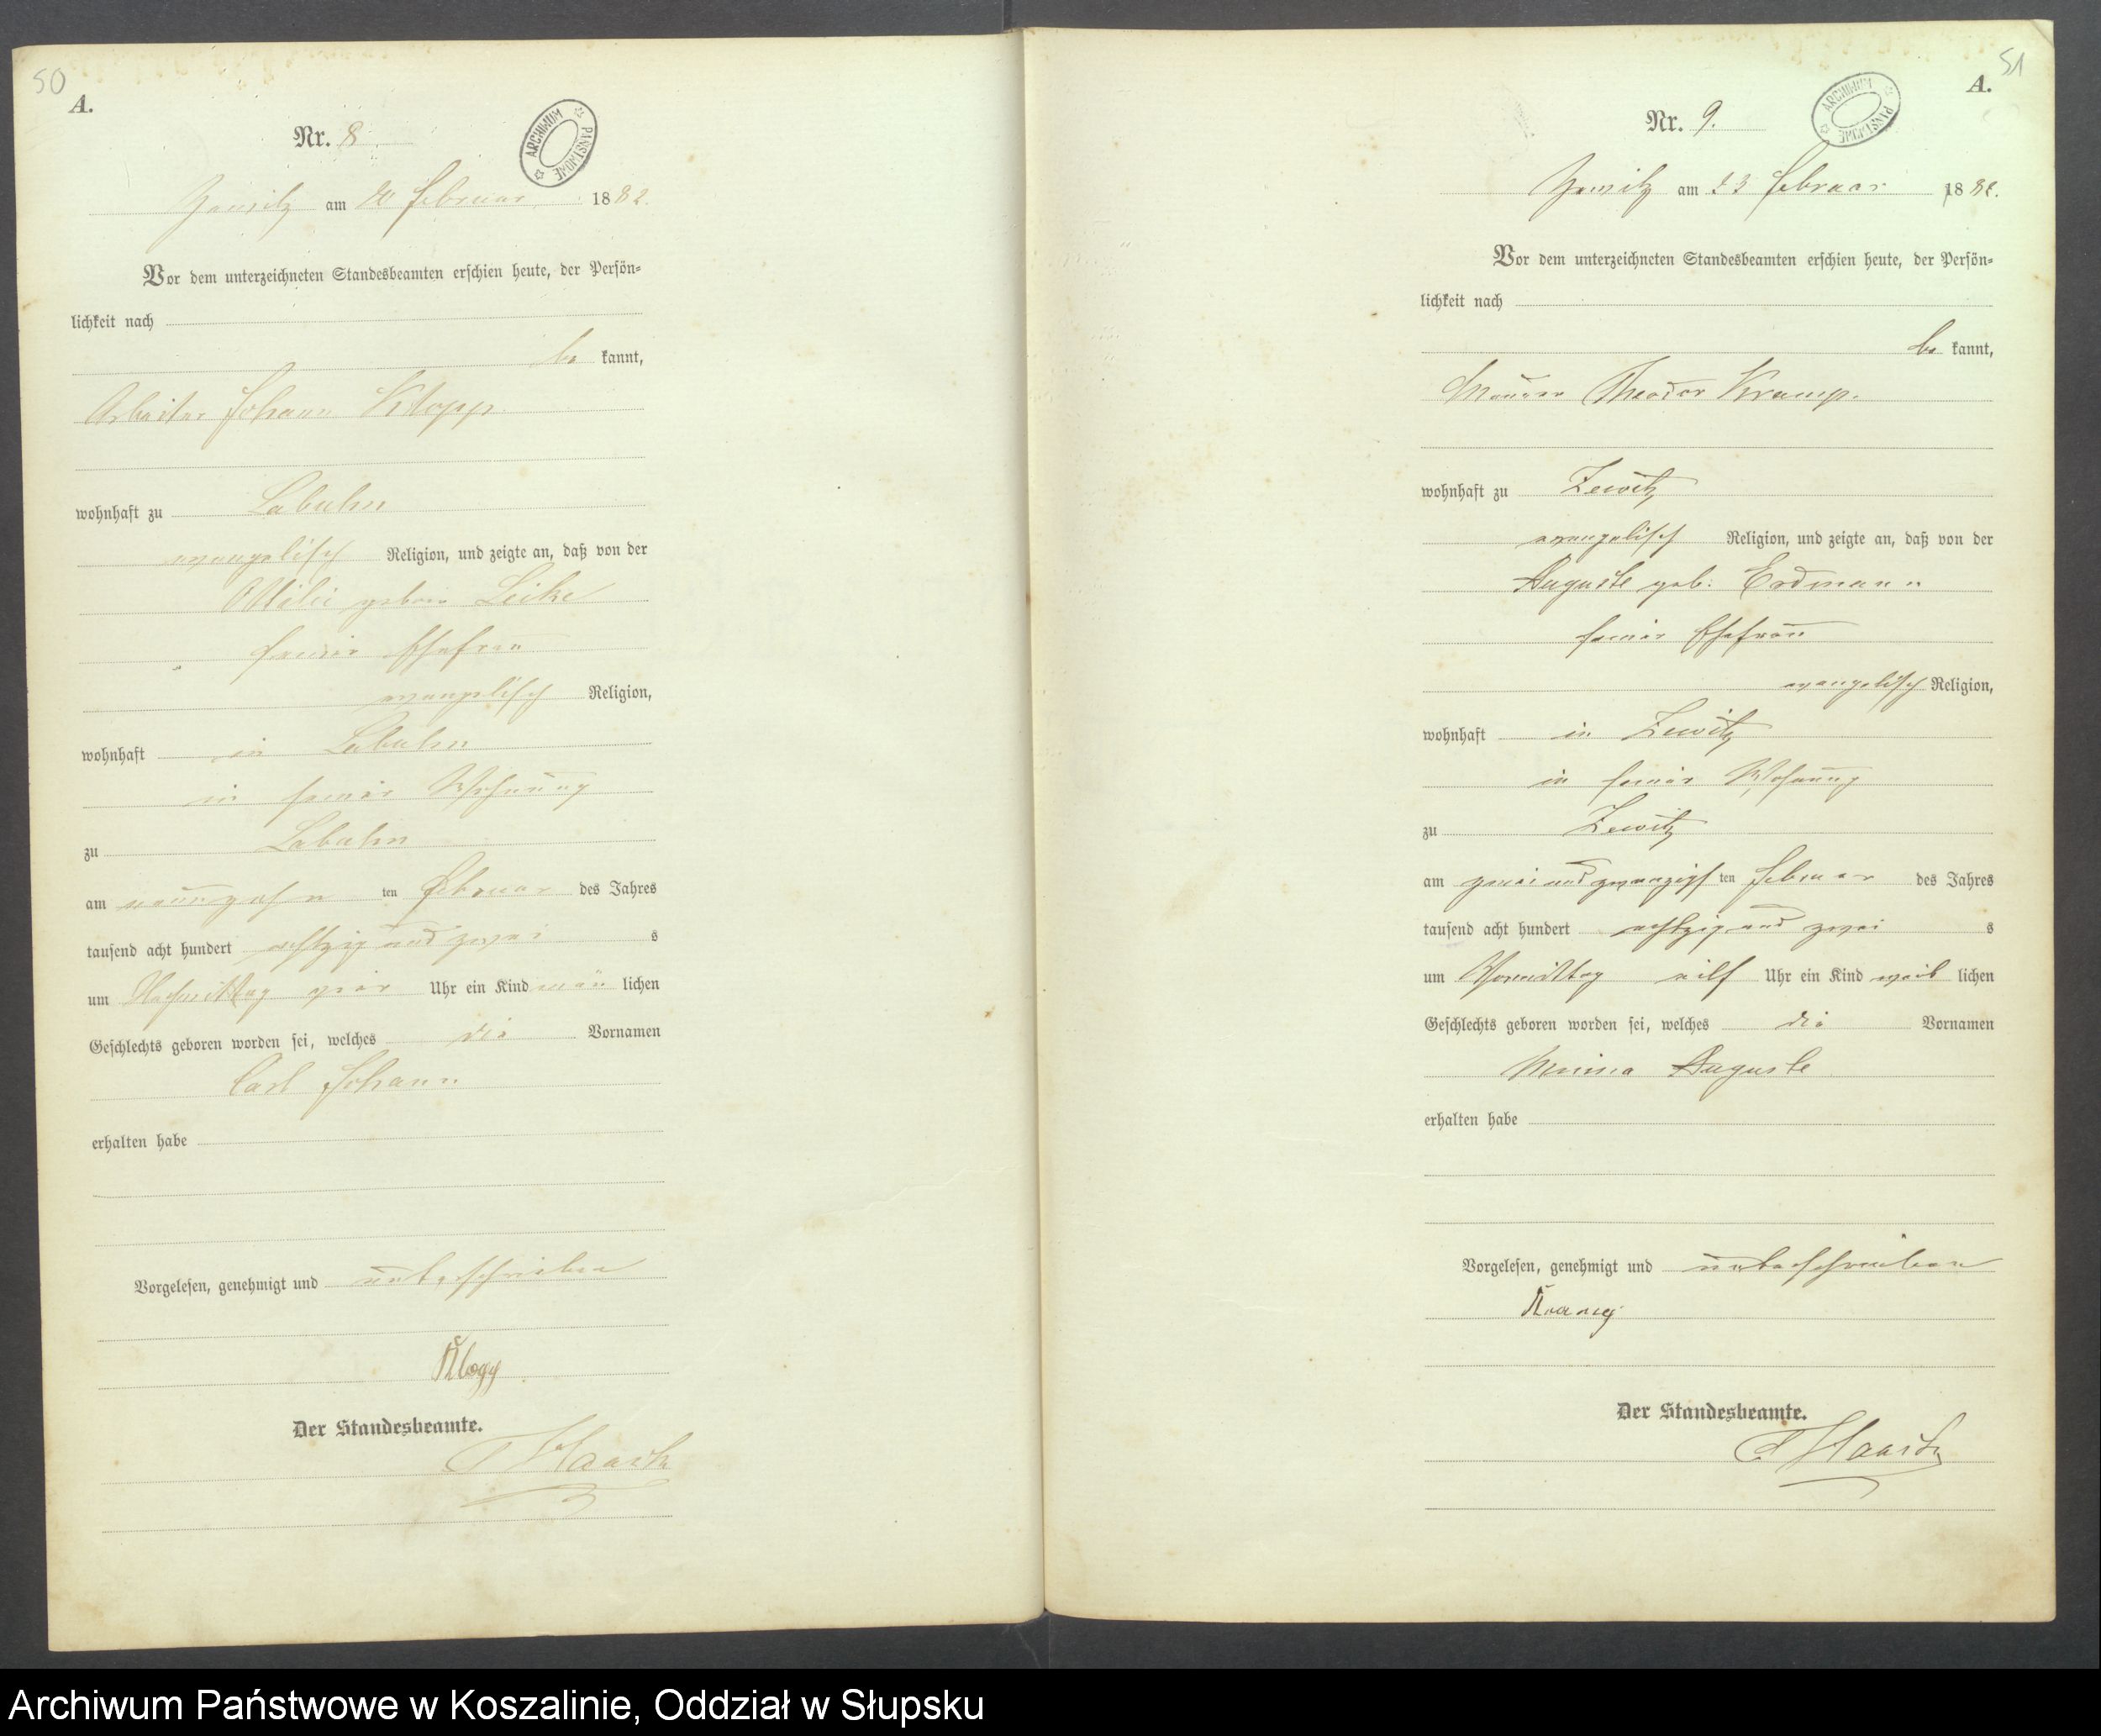 50
A.
Nr. 8
ARCHIWUM PAŃSTWOWE
am 20 Februar 1882.
Vor dem unterzeichneten Standesbeamten erschien heute, der Persön-
lichkeit nach
be kannt,
Arbeiter Johann Klopp
wohnhaft zu Labuhn
evangelisch Religion, und zeigte an, daß von der
Ottilie geboren Leike
seiner Ehefrau
evangelisch Religion,
wohnhaft in Labuhn
in seiner Wohnung
zu Labuhn
am neunzehn ten Februar des Jahres
tausend acht hundert achtzig und zwei s
um Nachmittag vier Uhr ein Kind män lichen
Geschlechts geboren worden sei, welches die Vornamen
Carl Johann
erhalten habe
Vorgelesen, genehmigt und unterschrieben
Klopp
Der Standesbeamte.
51
A.
Nr. 9.
ARCHIWUM PAŃSTWOWE
am 23 Februar 1882.
Vor dem unterzeichneten Standesbeamten erschien heute, der Persön-
lichkeit nach
be kannt,
Maurer Theodor Kramp.
wohnhaft zu Zewitz
evangelisch Religion, und zeigte an, daß von der
Auguste geb: Erdmann
seiner Ehefrau
evangelisch Religion,
wohnhaft in Zewitz
in seiner Wohnung
zu Zewitz
am zweiundzwanzigs ten Februar des Jahres
tausend acht hundert achtzig und zwei s
um Vormittag elf Uhr ein Kind weib lichen
Geschlechts geboren worden sei, welches die Vornamen
Minna Auguste
erhalten habe
Vorgelesen, genehmigt und unterschrieben
Kramp
Der Standesbeamte.
Archiwum Państwowe w Koszalinie, Oddział w Słupsku